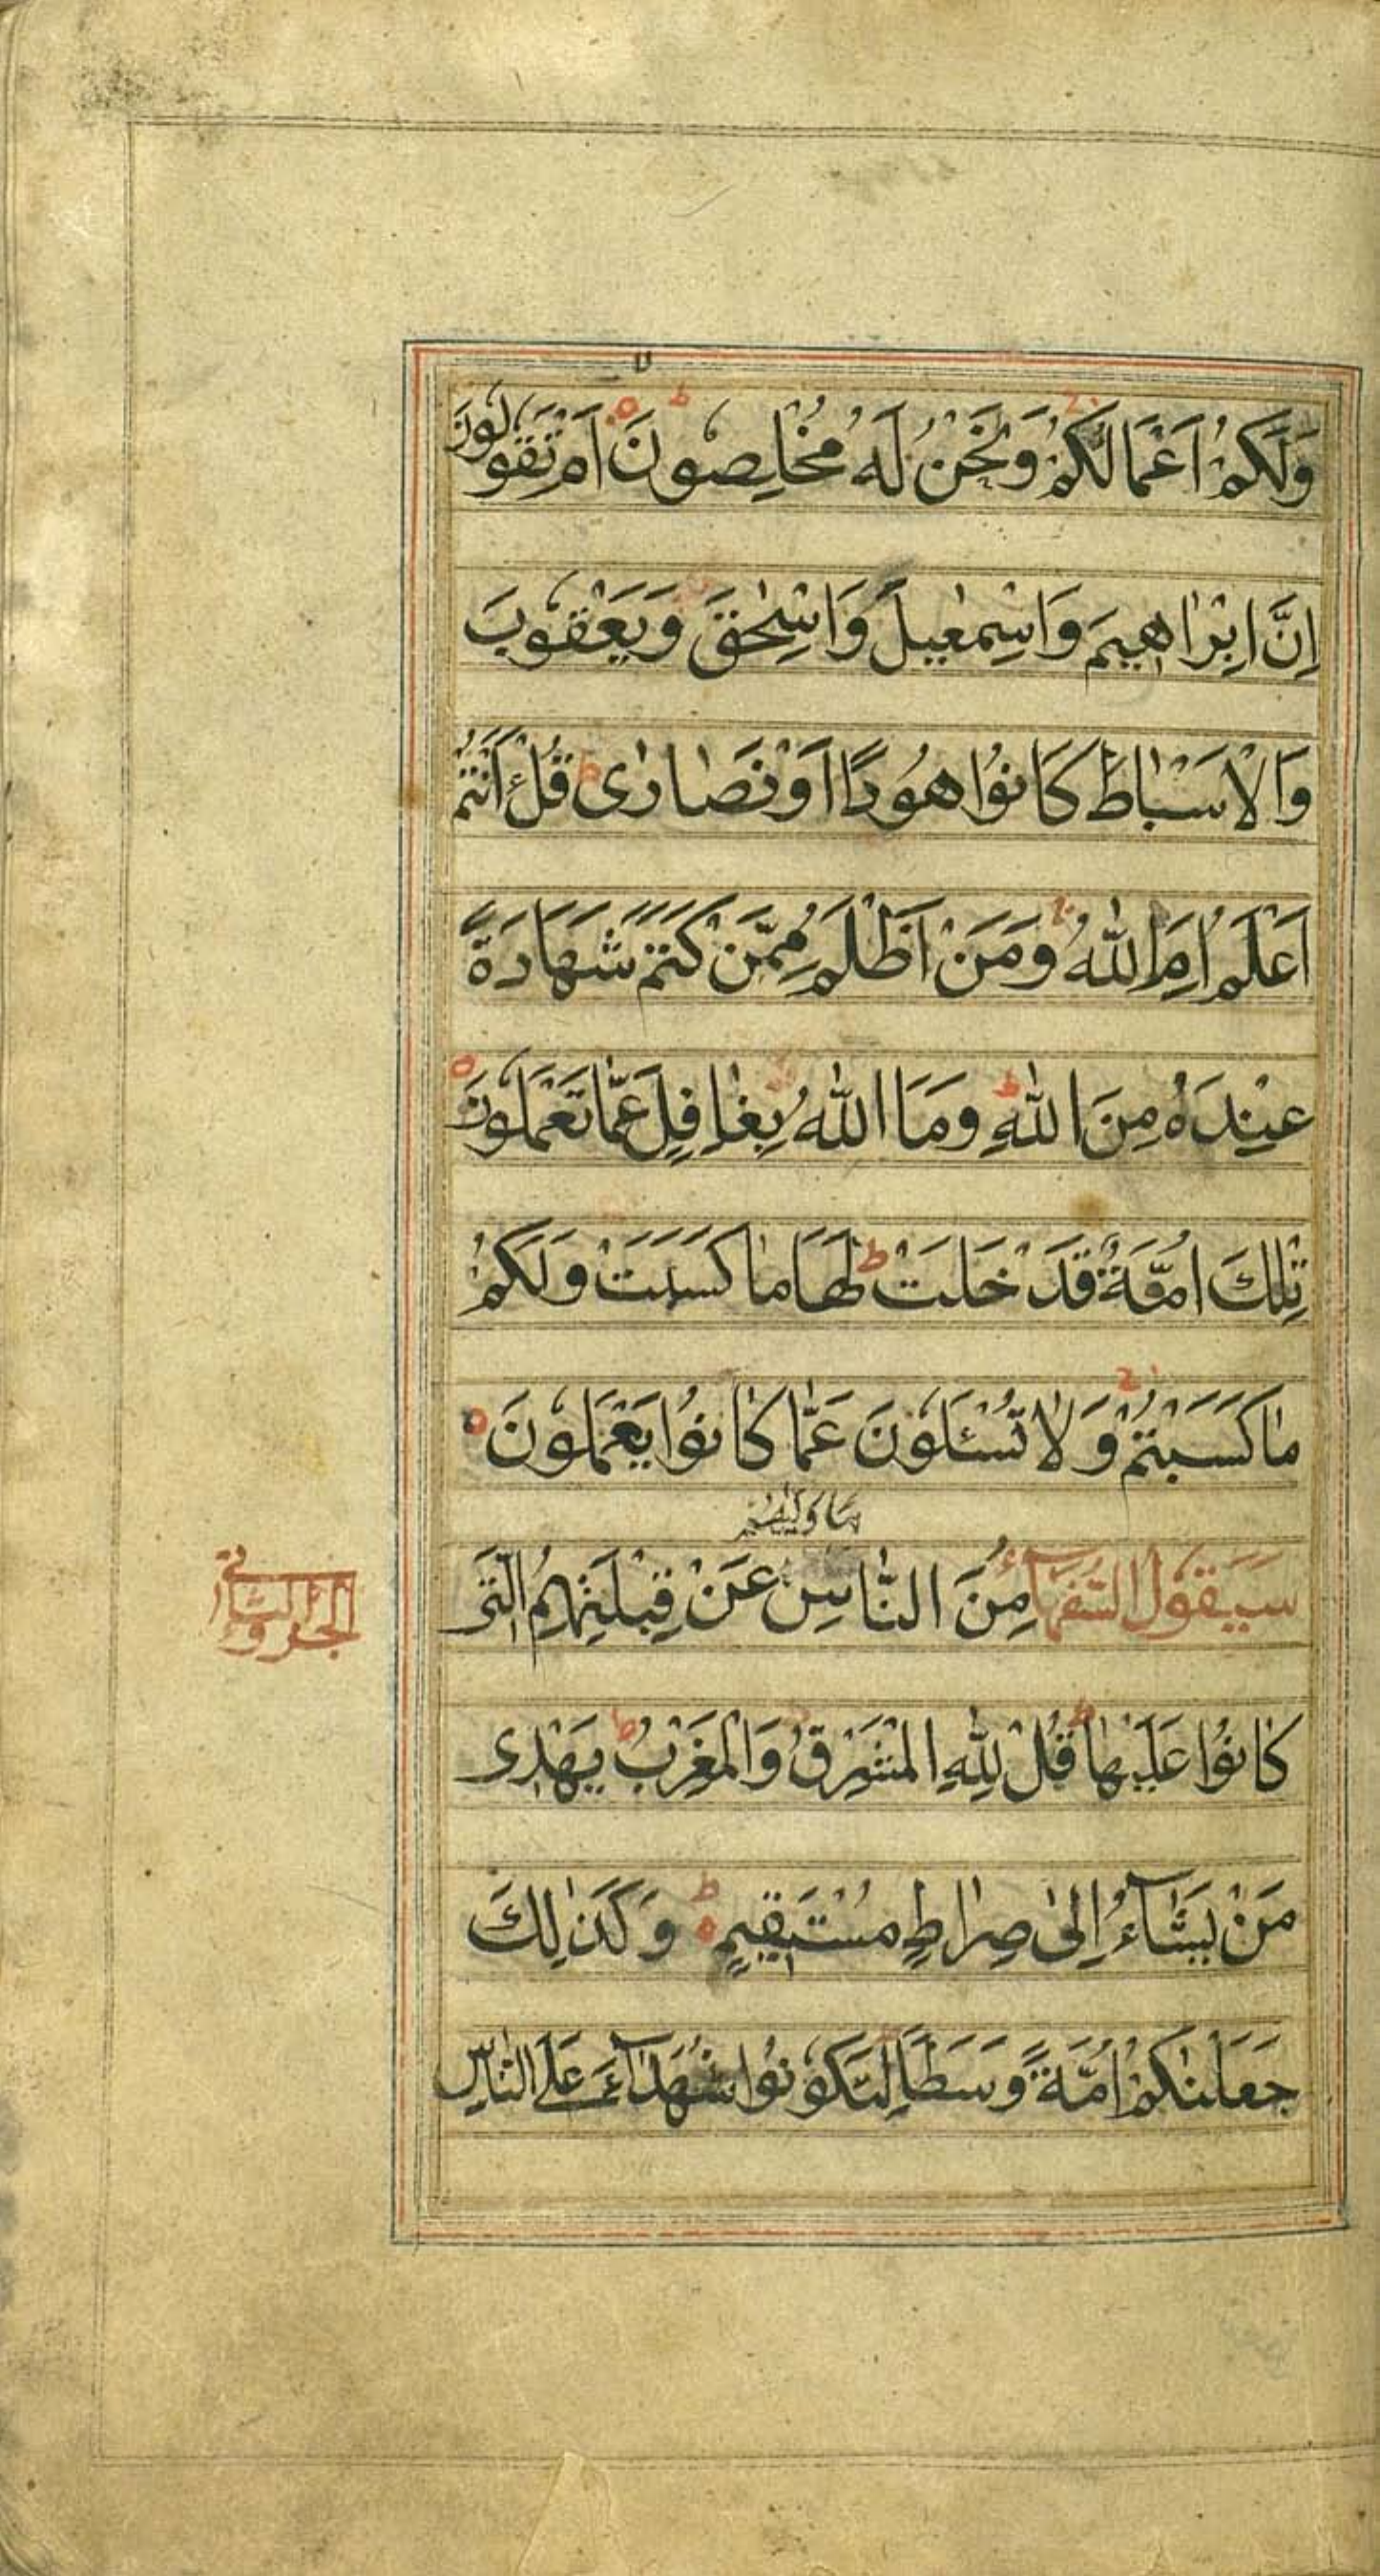 وَلَكُمْ اَعْمَالُكُمْ وَنَحْنُ لَهُ مُخْلِصُونَ اَمْ تَقُولُونَ
اِنَّ اِبْرَاهِيمَ وَاِسْمٰعِيلَ وَاِسْحٰقَ وَيَعْقُوبَ
وَالْاَسْبَاطَ كَانُوا هُودًا اَوْ نَصَارٰى قُلْ ءَاَنْتُمْ
اَعْلَمُ اَمِ اللّٰهُ وَمَنْ اَظْلَمُ مِمَّنْ كَتَمَ شَهَادَةً
عِنْدَهُ مِنَ اللّٰهِ وَمَا اللّٰهُ بِغَافِلٍ عَمَّا تَعْمَلُونَ
تِلْكَ اُمَّةٌ قَدْ خَلَتْ ط لَهَا مَا كَسَبَتْ وَلَكُمْ
مَا كَسَبْتُمْ وَلَا تُسْئَلُونَ عَمَّا كَانُوا يَعْمَلُونَ
مَا وَلّٰيهُمْ
سَيَقُولُ السُّفَهَآءُ مِنَ النَّاسِ عَنْ قِبْلَتِهِمُ الَّتِى
الجزؤ الثانى
كَانُوا عَلَيْهَا ط قُلْ لِلّٰهِ الْمَشْرِقُ وَالْمَغْرِبُ ط يَهْدِى
مَنْ يَشَآءُ اِلٰى صِرَاطٍ مُسْتَقِيمٍ ط وَكَذٰلِكَ
جَعَلْنٰكُمْ اُمَّةً وَسَطًا لِتَكُونُوا شُهَدَآءَ عَلَى النَّاسِ